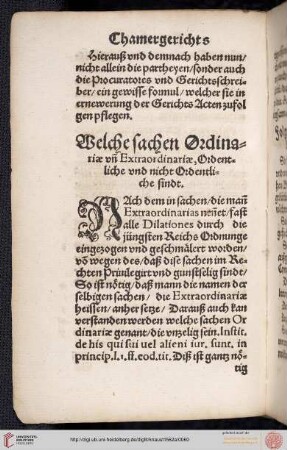 Chamergerichts
Hierauß vnd demnach haben nun/
nicht allein die partheyen/sonder auch
die Procuratores vnd Gerichtsschrei-
ber/ein gewisse formul/welcher sie in
ernewerung der Gerichts Acten zufol
gen pflegen.
Welche sachen Ordina-
riæ vñ Extraordinariæ, Ordent-
liche vnd nicht Ordentli-
che sindt.
NAch dem in sachen/die mañ
Extraordinarias neñet/fast
alle Dilationes durch die
jüngsten Reichs Ordnunge
eingezogen vnd geschmälert worden/
vō wegen des/daß dise sachen im Re-
chten Priuilegirt vnd gunstselig sindt/
So ist nötig/daß mann die namen der
selbigen sachen/ die Extraordinariæ
heissen/anher setze/ Darauß auch kan
verstanden werden welche sachen Or
dinariæ genant/die vnzelig sein. Instit.
de his qui sui uel alieni iur. sunt. in
princip.l.1.ff.eod.tit. Diß ist gantz nö-
tig